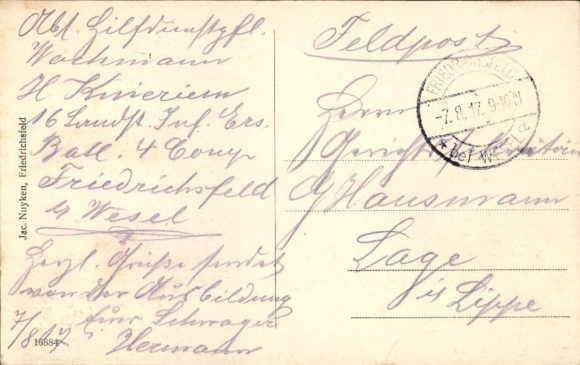 Abt. Hilfdienstpfl.
Wachmann
H Kinriem
16 Landst. Inf. Ers.
Batl. 4 Comp
Friedrichsfeld
b/ Wesel
Herzl. Grüße sendet
von der Ausbildung
Euer Schwager
7/8 17 Hermann
16884
Jac. Nuyken, Friedrichsfeld
Feldpost
FRIEDRICHSFELD
-7.8.17. 9-10 N
* bei a
Herrn
Gerichts
G Hausmann
Lage
i/s Lippe